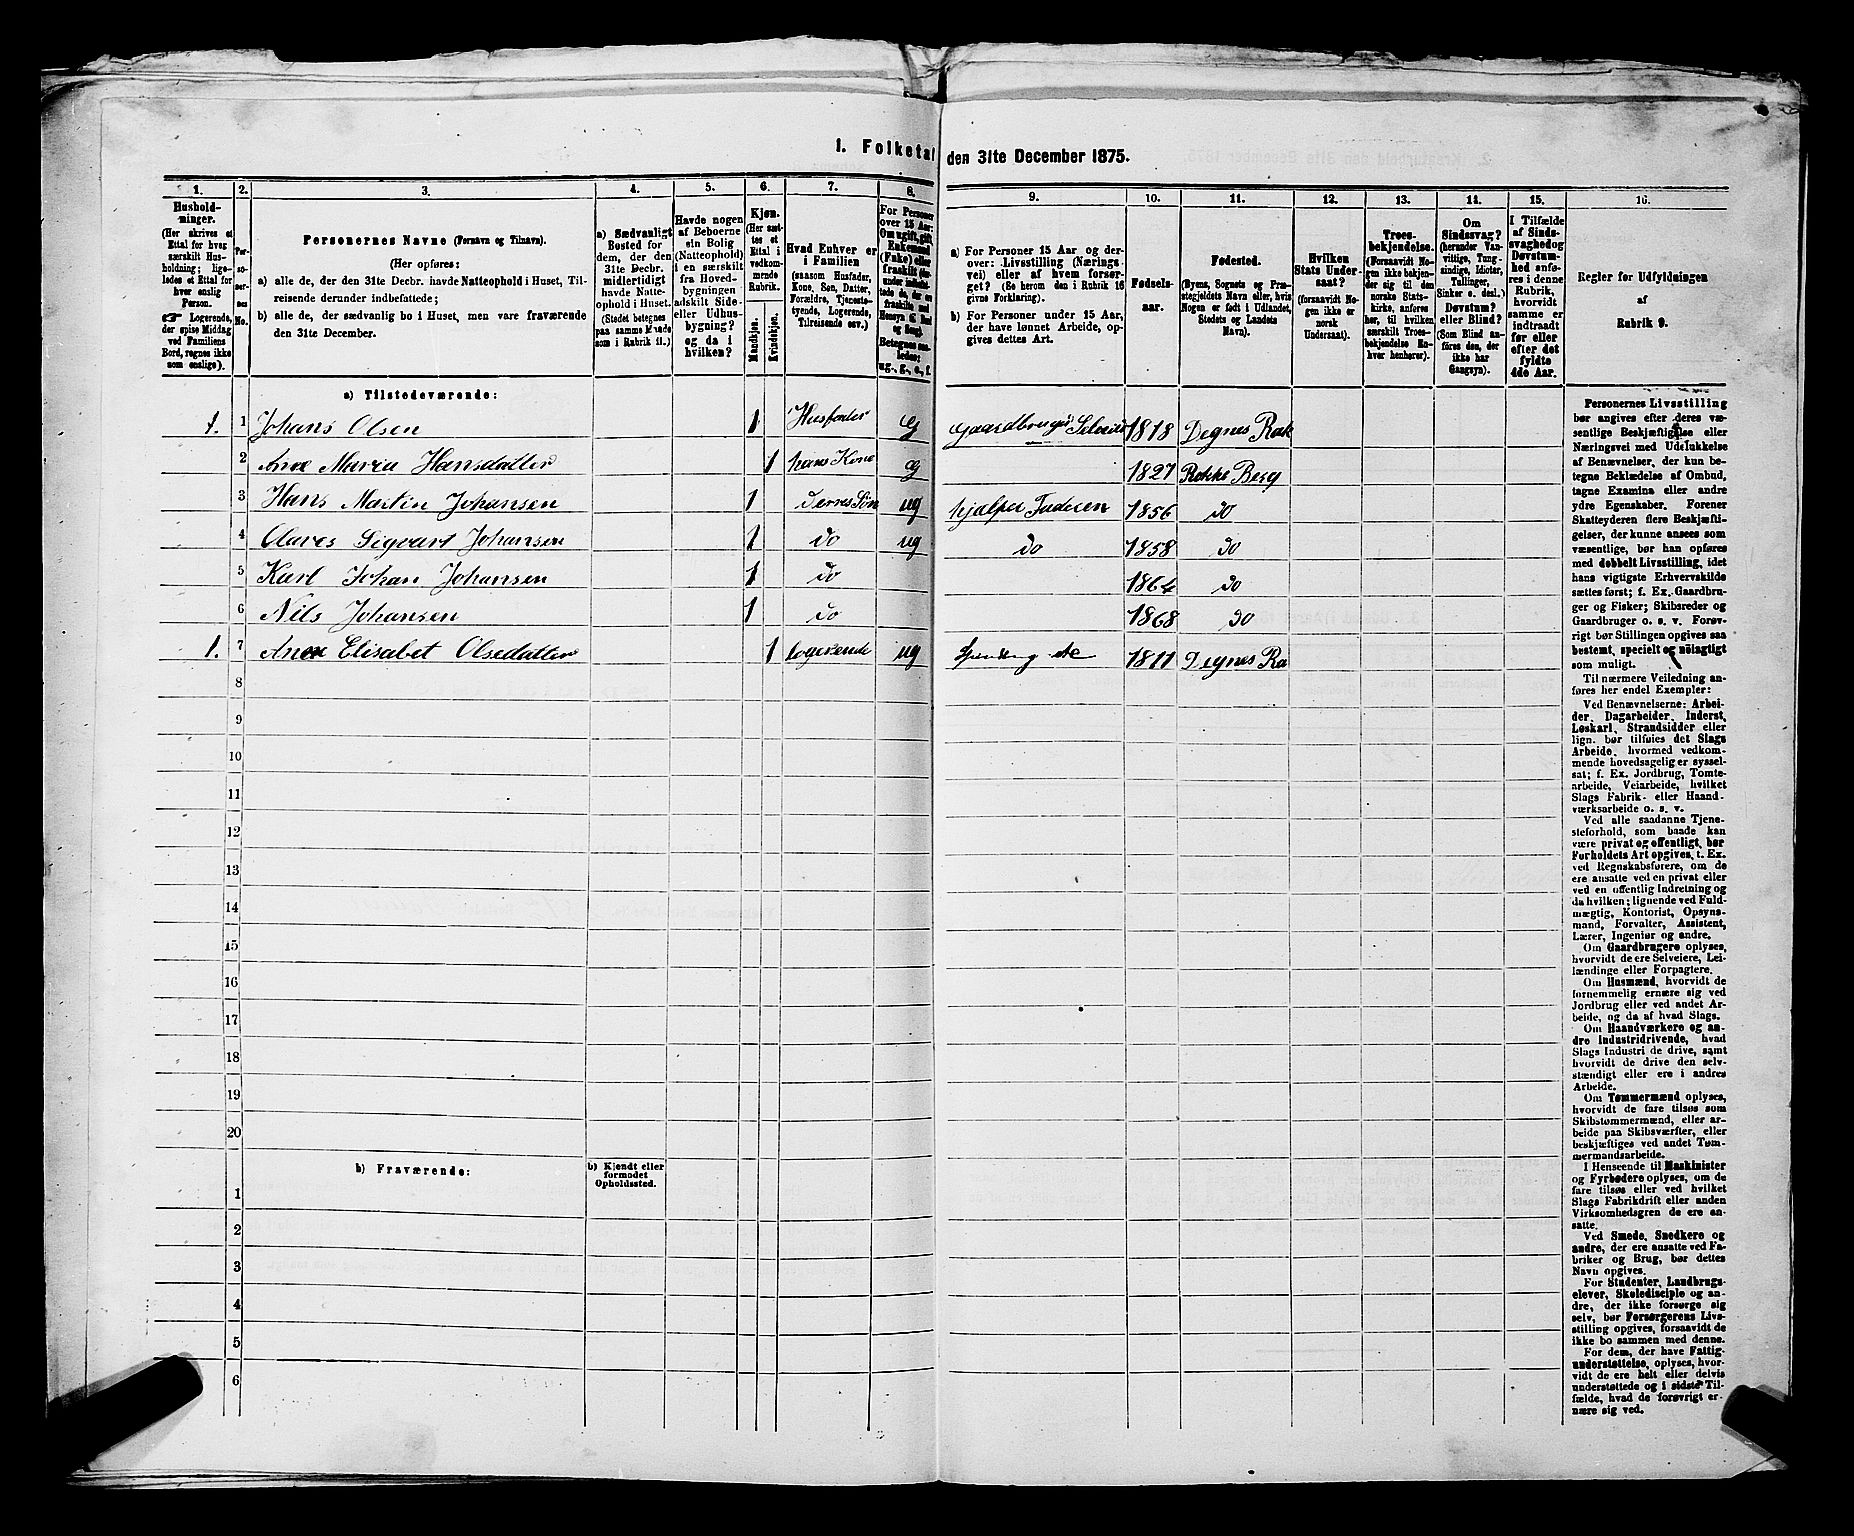 1. Folketal den 31te December 1875.
1. 2. 3. 4. 5. 6. 7. 8. 9. 10. 11. 12. 13. 14. 15. 16.
Hushold-
ninger.
(Her skrives et
Ettal for hver
særskilt Hus-
holdning; lige-
ledes et Ettal
for hver
enslig
Person.
☞ Logerende,
der spise Middag
ved Familiens
Bord, regnes ikke
som enslige).
Per-
so-
ner-
nes
No.
Personernes Navne (Fornavn og Tilnavn).
(Her opføres:
a) alle de, der den 31te Decbr. havde Natteophold i Huset, Til-
reisende derunder indbefattede;
b) alle de, der sædvanlig bo i Huset, men vare fraværende
den 31te December.
a) Sædvanligt
Bosted for
dem, der den
31te Decbr.
midlertidigt
havde Natte-
ophold i Huset.
(Stedet betegnes
paa samme Maade
som i Rubrik 11.)
Havde nogen
af Beboerne
sin Bolig
(Natteophold)
i en særskilt
fra Hoved-
bygningen
adskilt Side-
eller Udhus-
bygning?
og da i
hvilken?
Kjøn.
(Her sæt-
tes et
Ettal i
vedkom-
mende
Rubrik.
Mandkjøn.
Kvindekjøn.
Hvad Enhver er
i Familien
(saasom Husfader,
Kone, Søn, Datter,
Forældre, Tjeneste-
tyende, Logerende,
Tilreisende osv.)
For Personer
over 15 Aar:
Om ugift, gift,
Enkemand
(Enke) eller
fraskilt
Betegnes saa-
ledes:
ug., g., e., f.
a) For Personer 15 Aar og der-
over: Livsstilling (Nærings-
vei) eller af hvem forsør-
get? (Se herom den i Rubrik 16
givne Forklaring).
b) For Personer under 15 Aar,
der have lønnet Arbeide, op-
gives dettes Art.
Fødsels-
aar.
Fødested.
(Byens, Sognets og Præ-
stegjeldets Navn eller, hvis
Nogen er født i Udlandet,
Stedets og Landets
Navn).
Hvilken
Stats Under-
saat?
(forsaavidt No-
gen ikke er
norsk
Undersaat).
Troes-
bekjendelse.
(Forsaavidt No-
gen ikke bekjen-
der sig til den
norske Stats-
kirke, anføres
her, til hvilken
særskilt Troes-
bekjendelse En-
hver henhører).
Om
Sindssvag?
(herunder Van-
vittige, Tung-
sindige, Idioter,
Tullinger,
Sinker o. desl.)
Døvstum?
eller Blind?
(Som Blind an-
føres den, der
ikke har
Gangsyn).
I Tilfælde
af Sinds-
svaghed og
Døvstum-
hed anfø-
res i denne
Rubrik,
hvorvidt
samme er
indtraadt
før eller
efter det
fyldte
4de Aar.
Regler for Udfyldningen
af
Rubrik 9.
a) Tilstedeværende:
1. 1 Johans Olsen 1 Husfader g Gaardbruger Selveier 1818 Degnes Rak
2 Ane Maria Hansdatter 1 hans Kone g 1827 Rakke Berg
3 Hans Martin Johansen 1 deres Søn ug hjælper Faderen 1856 do
4 Olaves Sigvart Johansen 1 do ug do 1858 do
5 Karl Johan Johansen 1 do 1864 do
6 Nils Johansen 1 do 1868 do
1. 7 Ane Elisabet Olsedatter 1 Logerende ug 1811 Degnes Ra
8
9
10
11
12
13
14
15
16
17
18
19
20
b) Fraværende:
b) Kjendt eller
formodet
Opholdssted.
1
2
3
4
5
6
Personernes Livsstilling
bør angives efter deres væ-
sentlige Beskjæftigelse eller
Næringsvei med Udelukkelse
af Benævnelser, der kun be-
tegne Beklædelse af Ombud,
tagne Examina eller andre
ydre Egenskaber. Forener
Skatteyderen flere Beskjæfti-
gelser, der kunne ansees som
væsentlige, bør han opføres
med dobbelt Livsstilling, idet
hans vigtigste Erhvervskilde
sættes først; f. Ex. Gaardbru-
ger og Fisker; Skibsreder og
Gaardbruger o. s. v. Forøv-
rigt bør Stillingen opgives saa
bestemt, specielt og nøiagtigt
som muligt.
Til nærmere Veiledning an-
føres her endel Exempler:
Ved Benævnelserne: Arbei-
der, Dagarbeider, Inderst,
Løskarl, Strandsidder eller
lign. bør tilføies det Slags
Arbeide, hvormed vedkom-
mende hovedsagelig er syssel-
sat; f. Ex. Jordbrug, Tomte-
arbeide, Veiarbeide, hvilket
Slags Fabrik- eller Haand-
værksarbeide o. s. v.
Ved alle saadanne Tjene-
steforhold, som baade kan
være privat og offentligt, bør
Forholdets Art opgives, t. Ex.
ved Regnskabsførere, om de
ere ansatte ved en privat eller
ved en offentlig Indretning og
da hvilken; lignende ved Fuld-
mægtig, Kontorist, Opsyns-
mand, Forvalter, Assistent,
Lærer, Ingeniør og andre.
Om Gaardbrugere oplyses,
hvorvidt de ere Selveiere, Lei-
lændinge eller Forpagtere.
Om Husmænd, hvorvidt de
fornemmelig ernære sig ved
Jordbrug eller ved andet Ar-
beide, og da af hvad Slags.
Om Haandværkere og an-
dre Industridrivende, hvad
Slags Industri de drive, samt
hvorvidt de drive den selv-
stændigt eller ere i andres
Arbeide.
Om Tømmermænd oplyses,
hvorvidt de fare tilsøs som
Skibstømmermænd, eller ar-
beide paa Skibsværfter, eller
beskjæftiges ved andet Tøm-
mermandsarbeide.
I Henseende til Maskinister
og Fyrbødere oplyses, om de
fare tilsøs eller ved hvilket
Slags Fabrikdrift eller anden
Virksomhedsgren de ere an-
satte.
Ved Smede, Snedkere og
andre, der ere ansatte ved Fa-
briker og Brug, bør dettes
Navn opgives.
For Studenter, Landbrugs-
elever, Skoledisciple og an-
dre, der ikke forsørge sig
selv, bør Forsørgerens Livs-
stilling opgives, forsaavidt de
ikke bo sammen med denne.
For dem, der have Fattig-
understøttelse, oplyses, hvor-
vidt de ere helt eller delvis
understøttede og i sidste Til-
fælde, hvad de forøvrigt er-
nære sig ved.